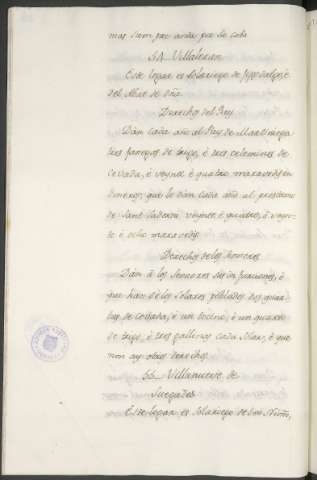 mas siempre anda por la cabe
51. Villalezan
Este logar es solariego de fijosdalgo, è
del Abat de Oña.
Derechos del Rey
Dan cada año al Rey de Martiniega
tres fanegas de trigo, è tres celemines de
cevada, è veynte è quatro maravedis en
dineros; que le dan cada año al prestamo
de Sant Saderni veynte è quatro, ò veyn-
te è ocho maravedis.
Derechos de los Señores
Dan à los Sennores de
que han de los solares poblados dos quar
tas de cebada, è un tocino, è un quarto
de trigo, è tres gallinas cada solar, è que
non ay otros derechos.
Villanueva de
Este logar es solariego de Don Nunno,